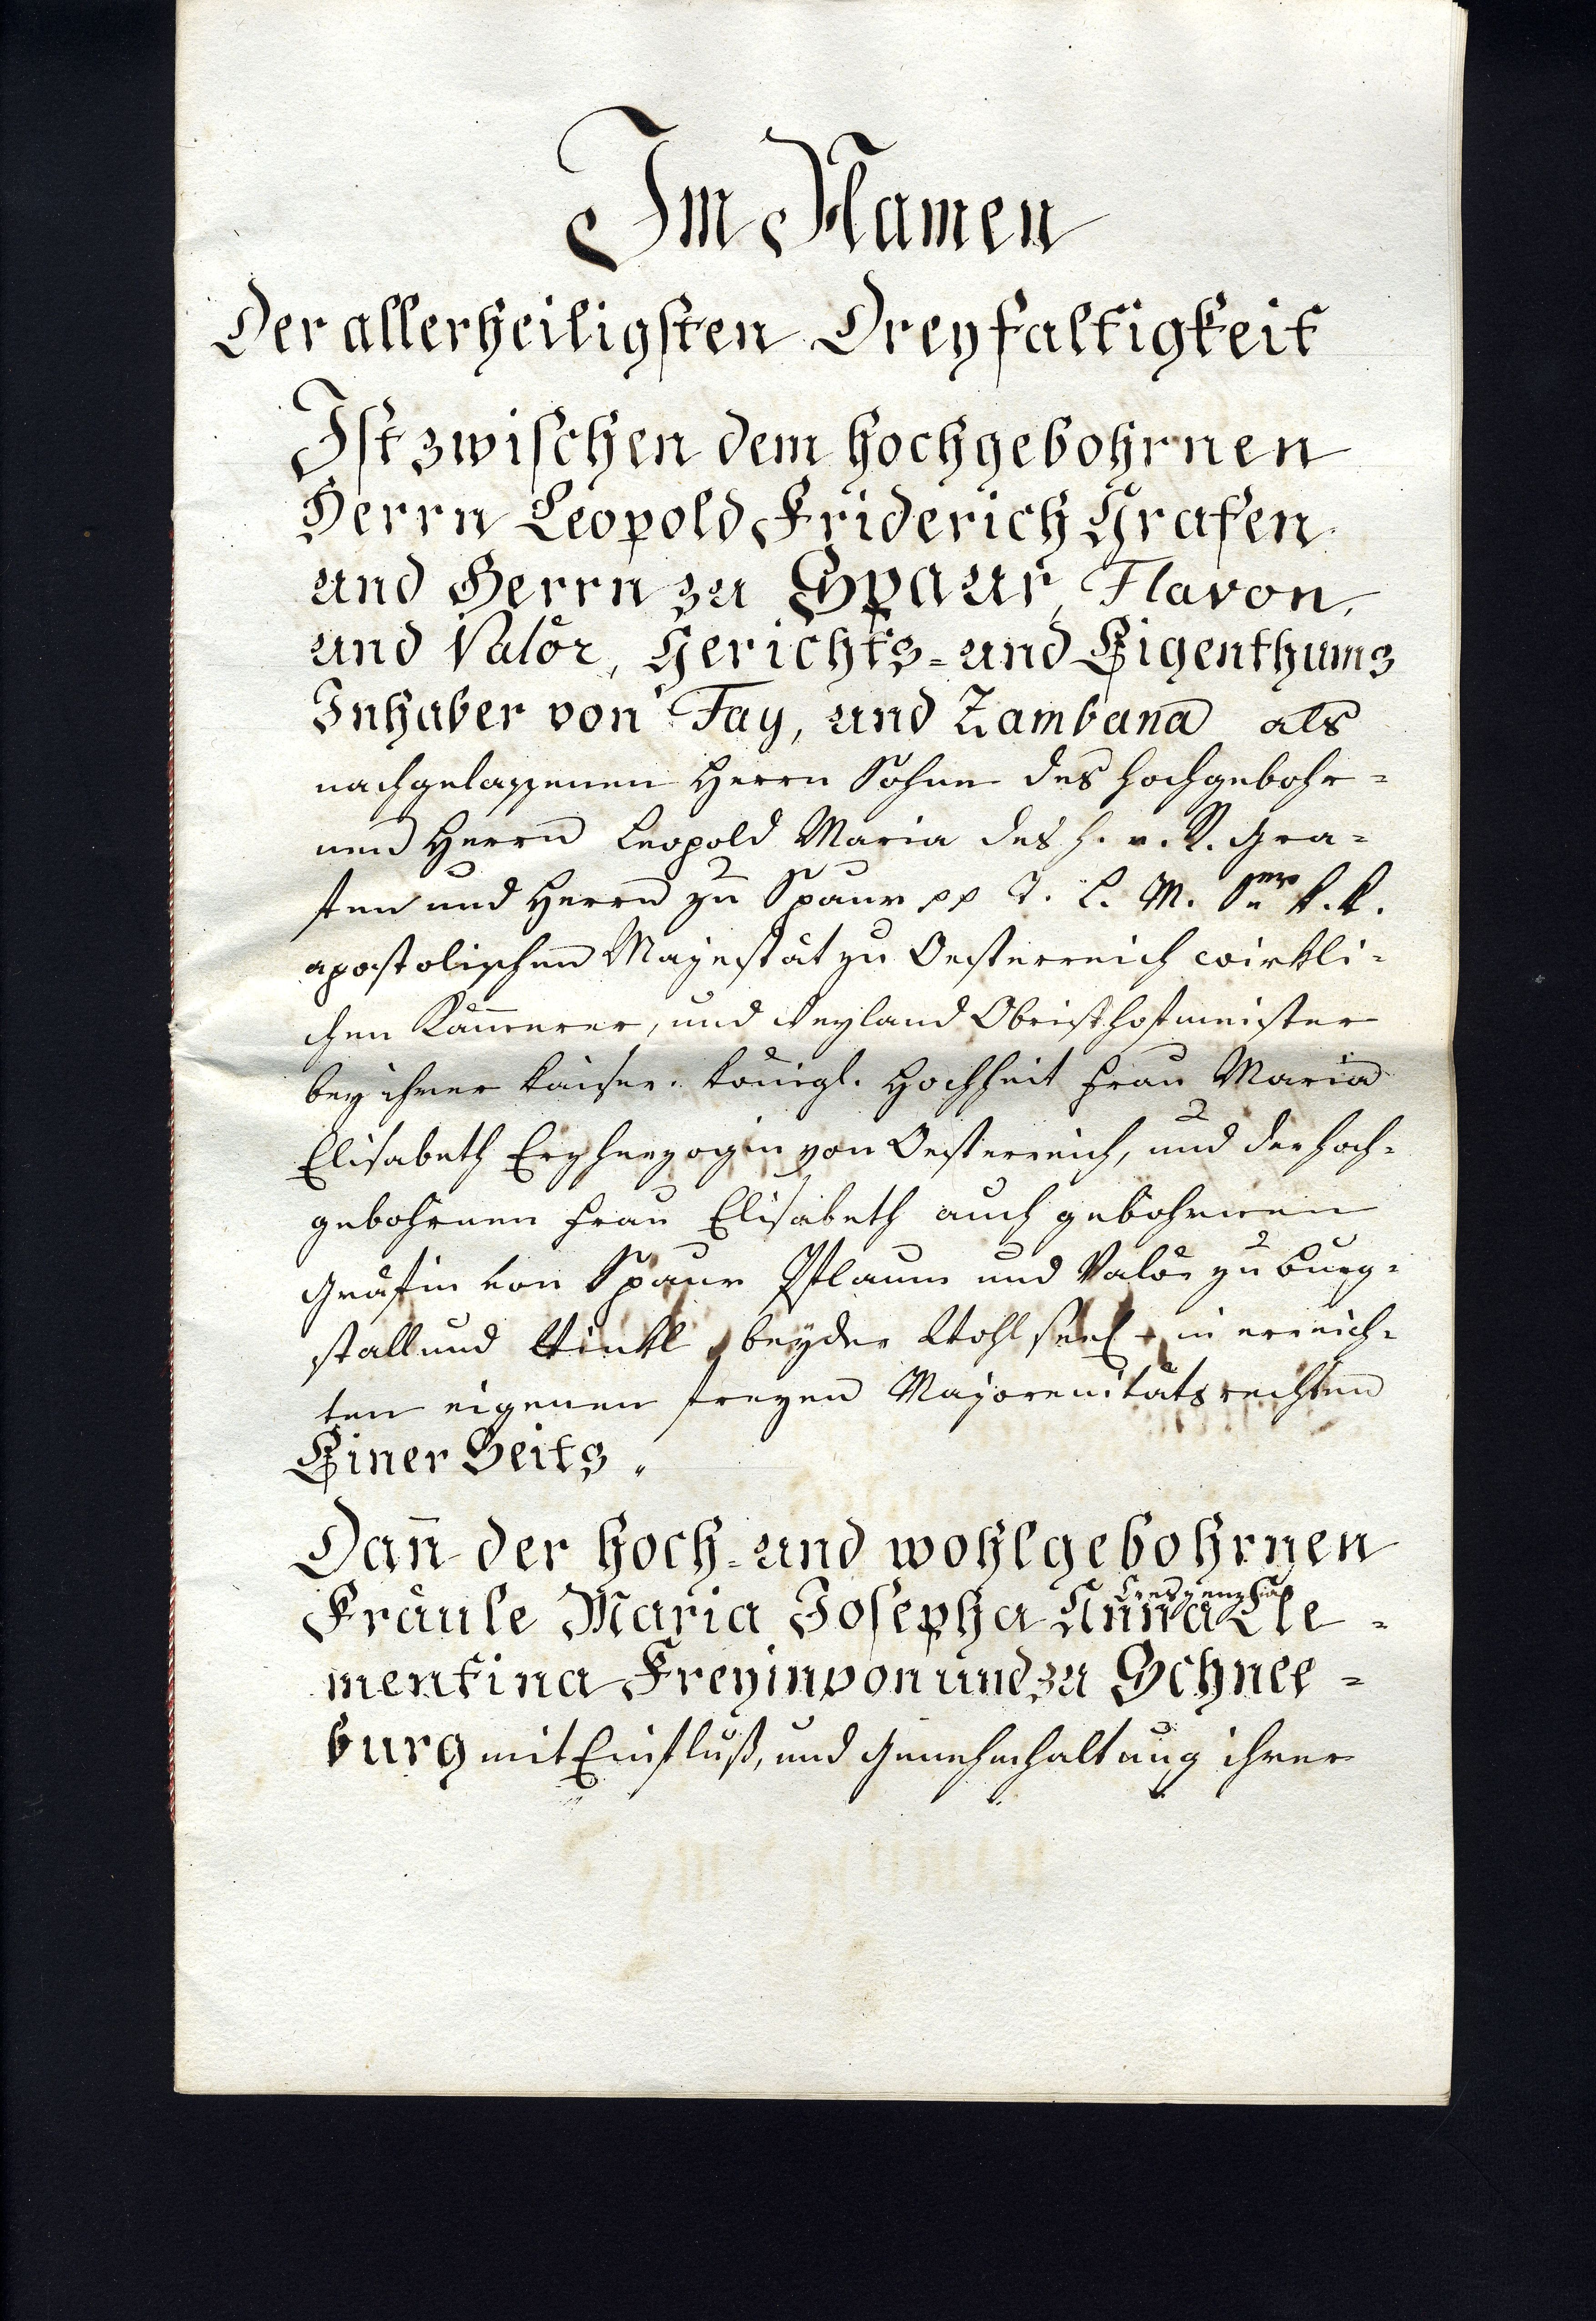 Im Namen
Der allerheiligsten Dreyfaltigkeit
Ist zwischen dem hochgebohrnen
Herrn Leopold Friderich Grafen
und Herrn zu Spaur, Flavon,
und Valör, Gerichts- und Eigenthums
Inhaber von Fay, und Zambana als
nachgelassenen Herrn Sohne des hochgebohr=
nen Herrn Leopold Maria des h. r. R. Gra=
fen und Herrn zu Spaur pp T. L. M. Sr k. k.
apostolischen Mayestät zu Oesterreich wirkli=
chen Kam̅erer, und weyland Obristhofmeister
bey ihrer kaiser. königl. Hochheit Frau Maria
Elisabeth Erzherzogin von Oesterreich, und der hoch=
gebohrnen Frau Elisabeth auch gebohrnen
Gräfin von Spaur Pflaum und Valör zu Burg=
stall und Winkl, beyder Wohlseel. in erreich=
ten eigenen freyen Majorenitätsrechten
Einer Seits.
Dan̅ der hoch- und wohlgebohrnen
Fräule Maria Josepha Anna Creszenzia Cle=
mentina Freyin von und zu Schnee=
burg mit Einfluß, und Genehmhaltung ihrer